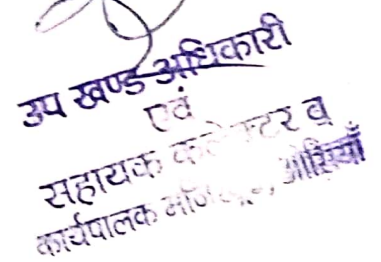 उप खण्ड अधिकारी
एवं
सहायक कलेक्टर व
कार्यपालक ओसियाँ